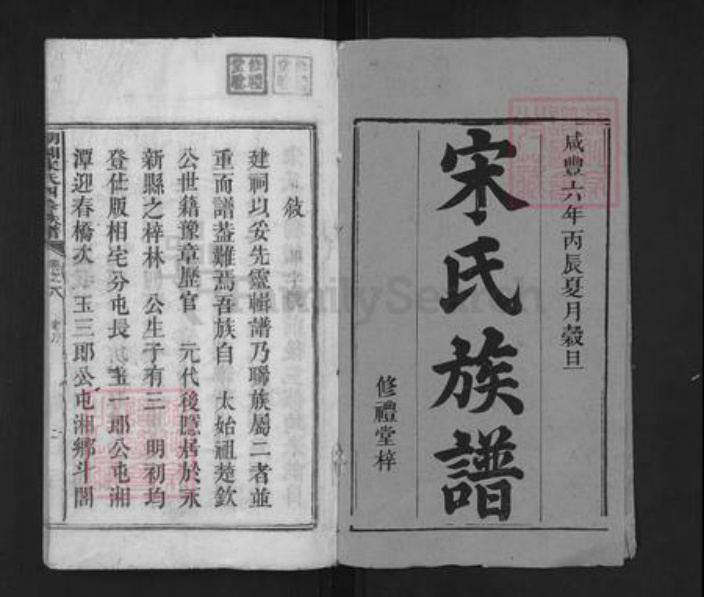 咸豐六年丙辰夏月穀旦
宋氏族譜
修禮堂梓
敘
建祠以妥先靈輯譜乃聯族屬二者並
重而譜葢難焉吾族自 太始祖楚欽
公世籍豫章歷官 元代後隱居於永
新縣之梓林 公生子有三 明初均
登仕版相宅分屯長 一郎公屯湘
潭迎春橋次 玉三郎公屯湘鄉斗閣
FamilySearch